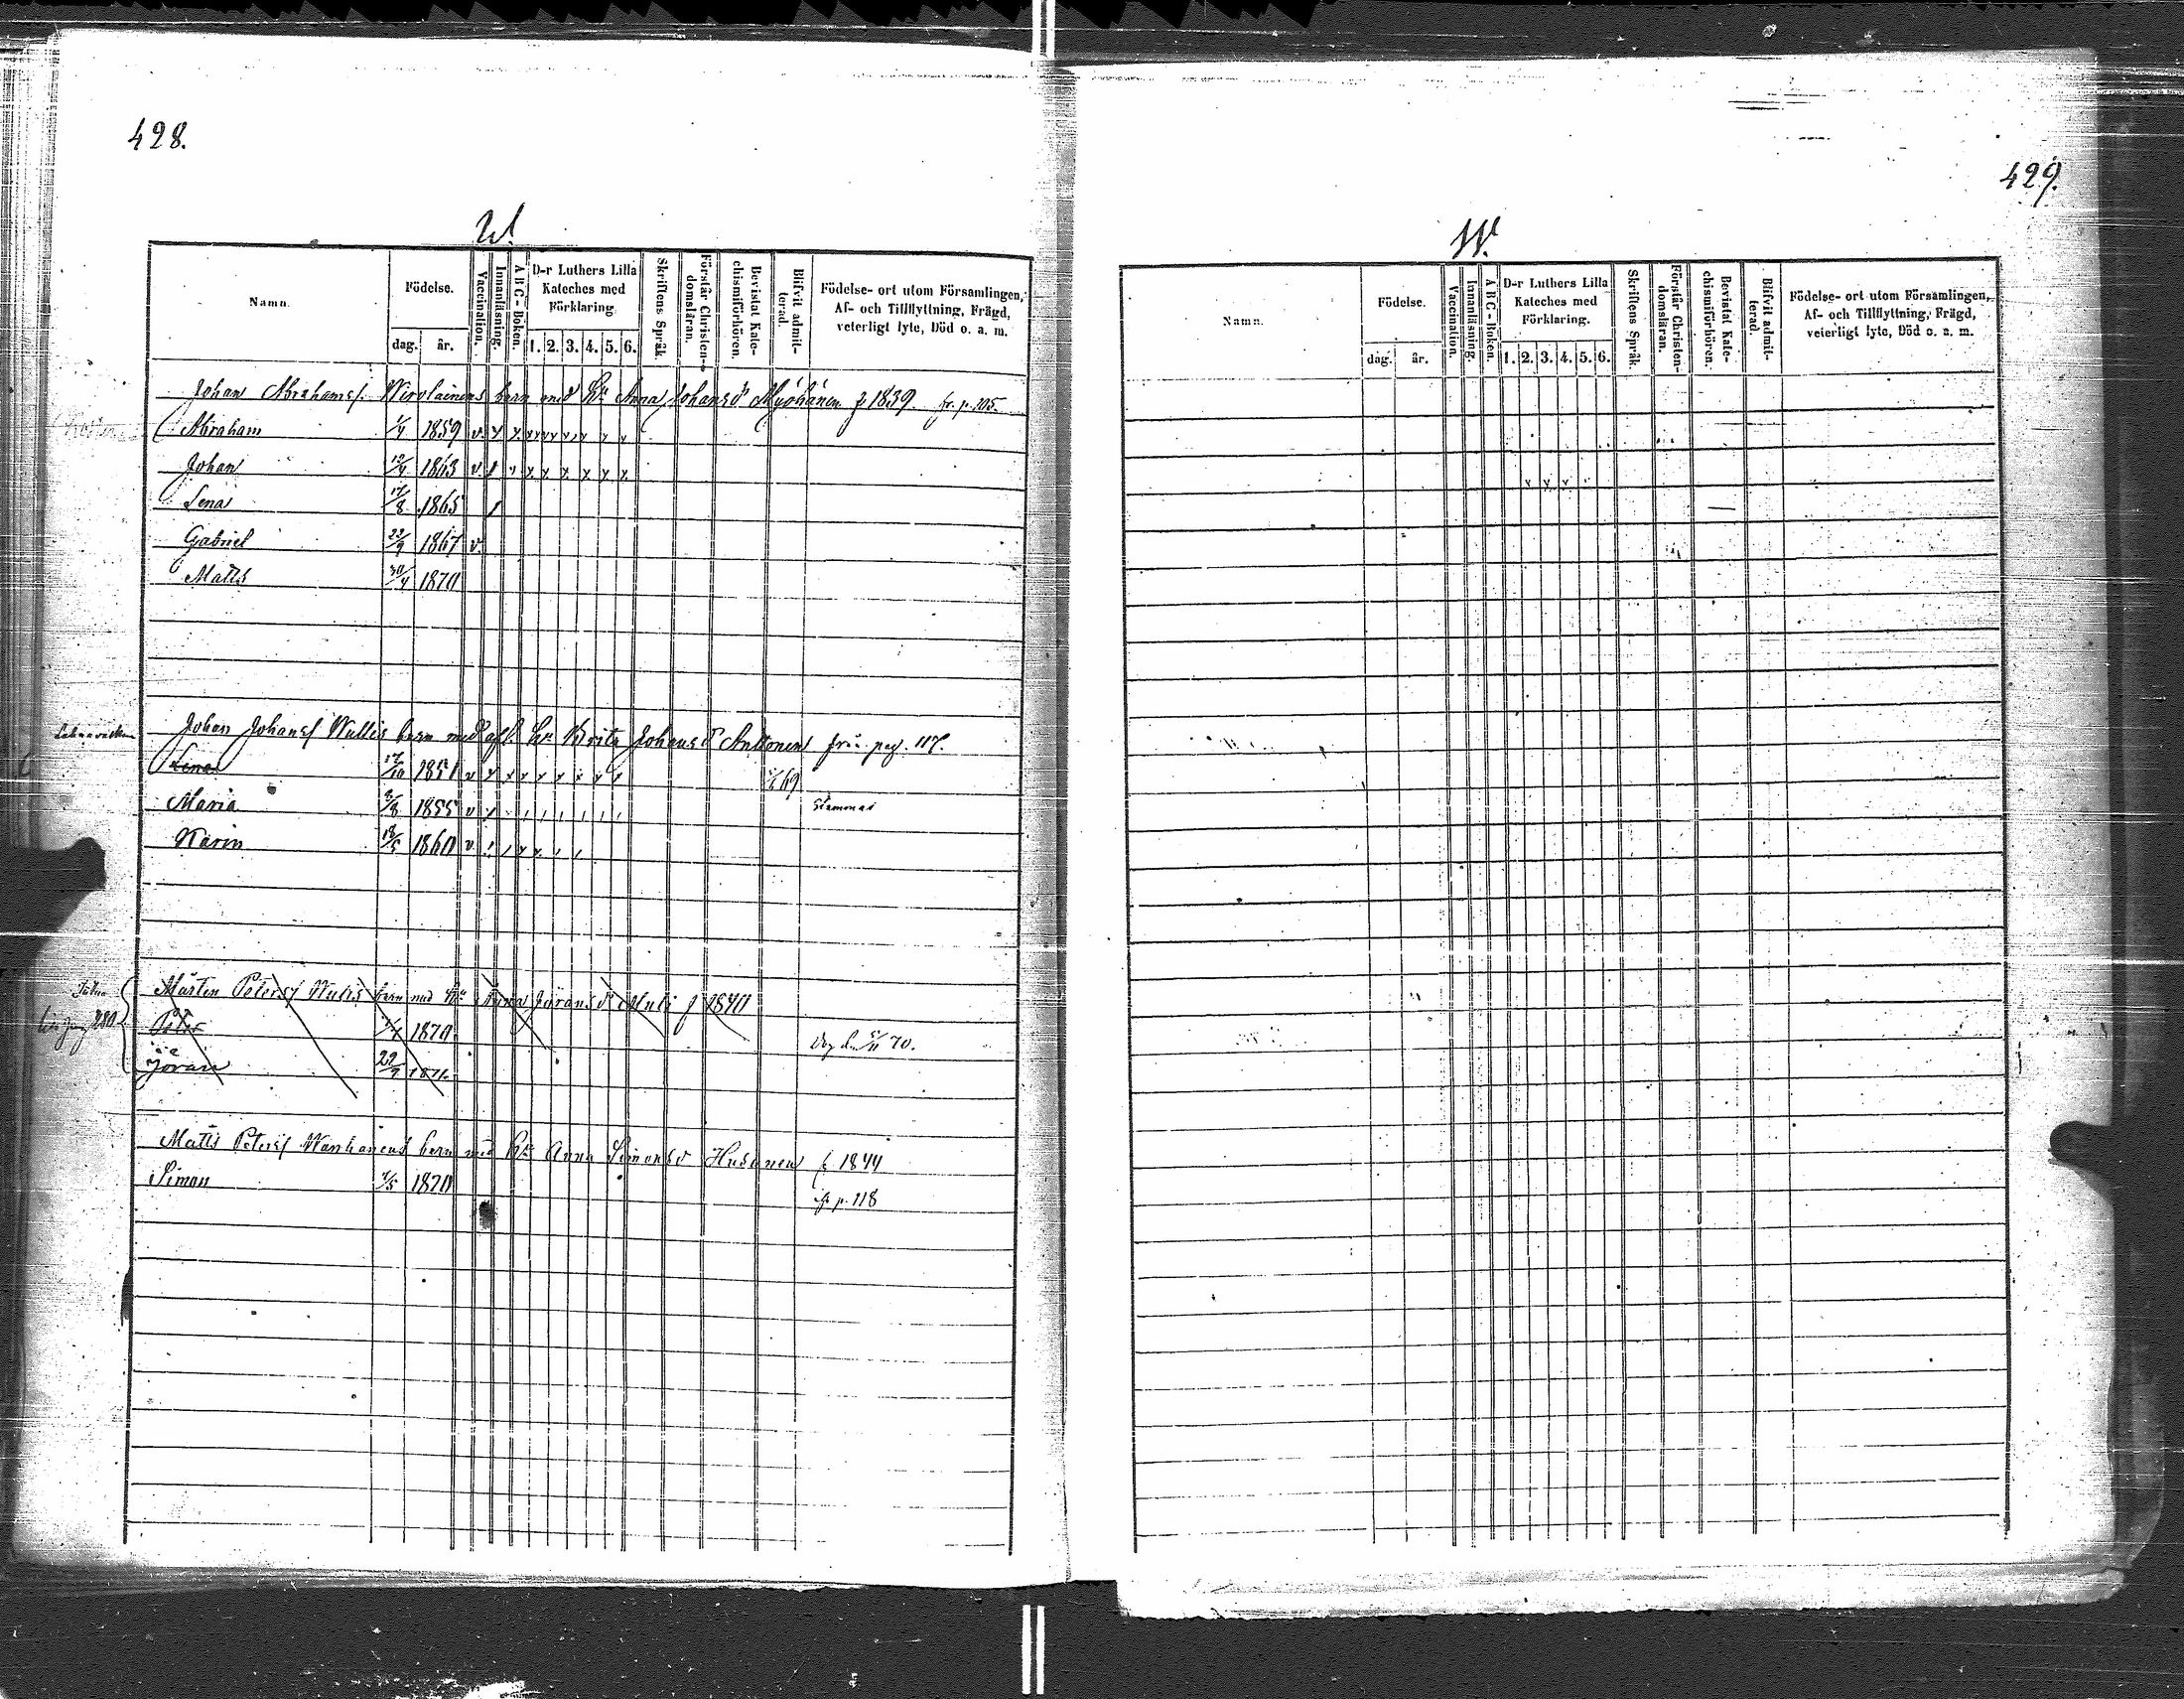 428.
W.
Namn. Födelse. Vaccination. Innanläsning. A B C-Boken. D-r Luthers Lilla Kateches med Förklaring. Skriftens Språk. Förstår Christendomsläran. Bevistat Katechismiförhören. Blifvit admitterad. Födelse- ort utom Församlingen, Af- och Tillflyttning, Frägd, veterligt lyte, Död o. a. m.
dag. år. 1. 2. 3. 4. 5. 6.
Johan Abrahamss. Wirolainens barn med h. Anna Johansdr Myöhänen f 1839. fr. p. 105.
Abraham 1/4 1859 v x x
Johan 12/4 1863 v
Lena 17/8 1865
Gabriel 23/9 1867 v.
Matts 30/4 1870
Johan Johanss Wallis barn med afl. h. Brita Johansd Anttonen från pag. 117.
Lena 17/10 1851 v x x x x x x x x 69
Maria 8/8 1855 v Stammar
Karin 18/5 1860 v
Mårten Peterss barn med h. Anna Göransd f 1840
Peter 1870 Dog d. 5/11 70.
Göran 22/9 1871.
Matts Peterss Wanhanens barn med h. Anna Simonsd Husunen f 1844
Simon 4/5 1870 fr p. 118
429.
W.
Namn. Födelse. Vaccination. Innanläsning. A B C-Boken. D-r Luthers Lilla Kateches med Förklaring. Skriftens Språk. Förstår Christendomsläran. Bevistat Katechismiförhören. Blifvit admitterad. Födelse- ort utom Församlingen, Af- och Tillflyttning, Frägd, veterligt lyte, Död o. a. m.
dag. år. 1. 2. 3. 4. 5. 6.